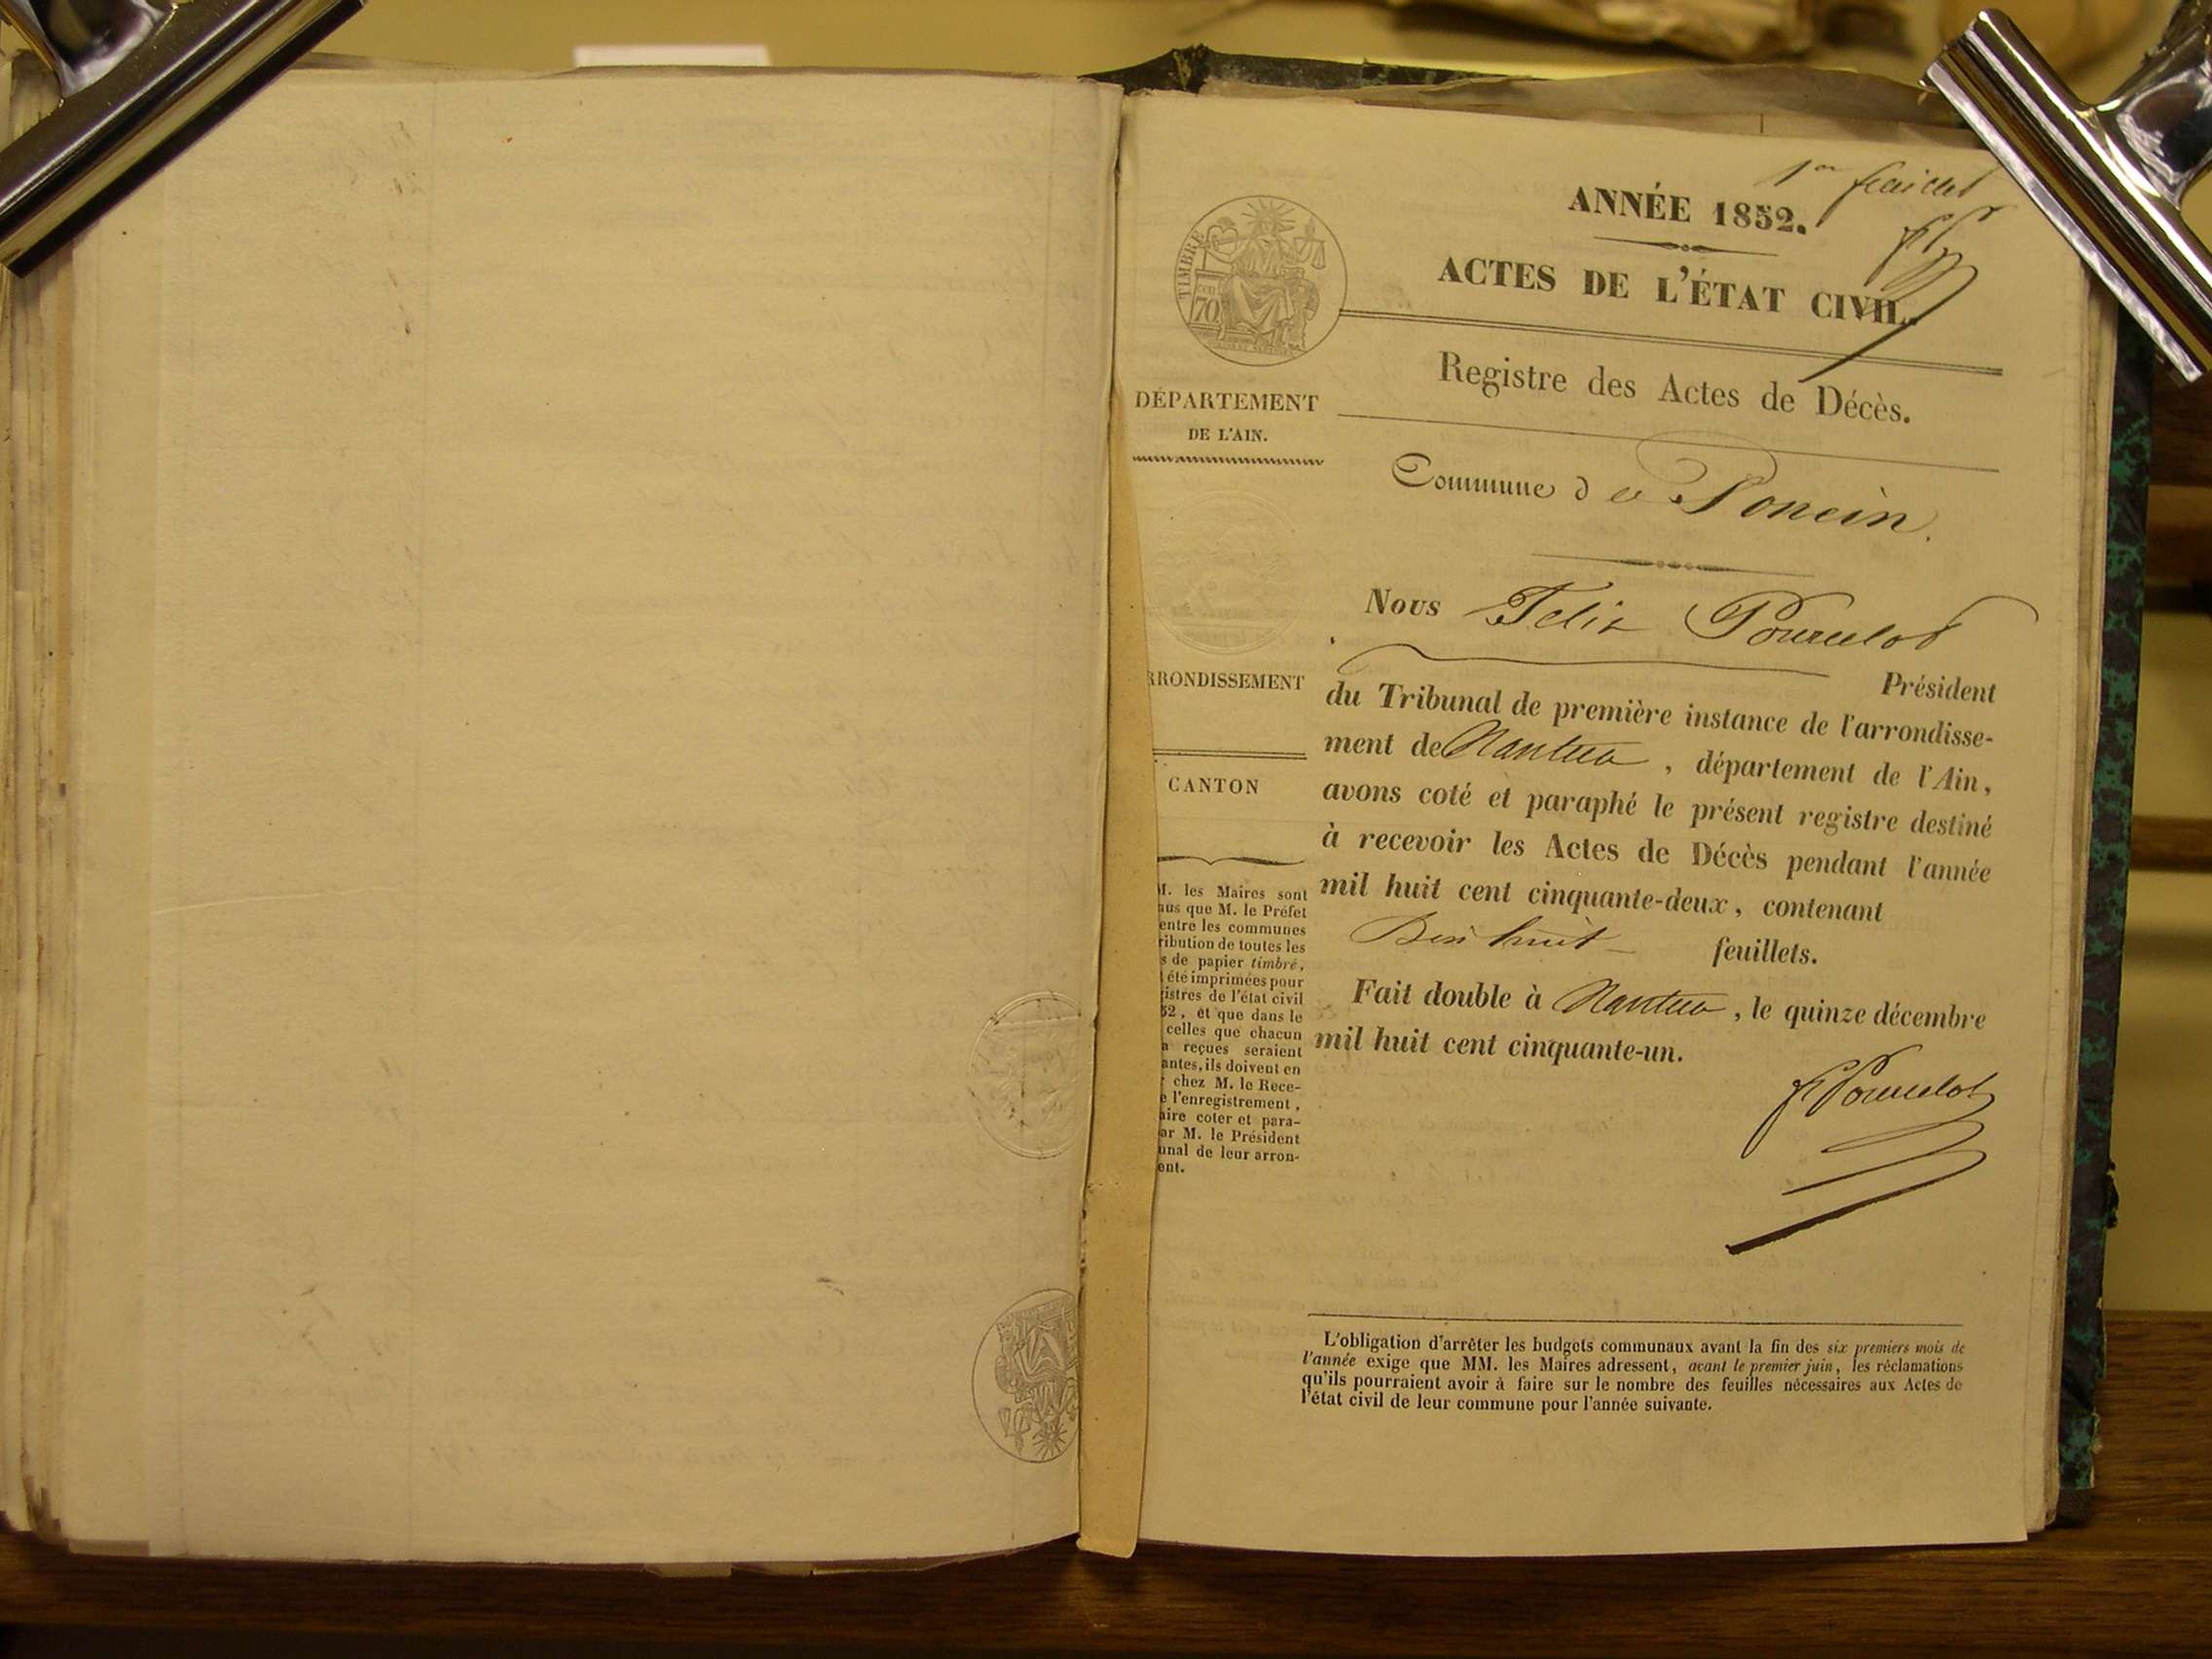 1er feuillet
ANNÉE 1852.
ACTES DE L'ÉTAT CIVIL.
TIMBRE
70
DÉPARTEMENT
DE L'AIN.
Registre des Actes de Décès.
Commune de Poncin.
Nous Felix Pourcelot
Président
du Tribunal de première instance de l'arrondisse-
ment de Nantua, département de l'Ain,
avons coté et paraphé le présent registre destiné
à recevoir les Actes de Décès pendant l'année
mil huit cent cinquante-deux, contenant
Dix huit feuillets.
Fait double à Nantua, le quinze décembre
mil huit cent cinquante-un.
F Pourcelot
RRONDISSEMENT
CANTON
M. les Maires sont
nus que M. le Préfet
entre les communes
ribution de toutes les
s de papier timbré,
t été imprimées pour
istres de l'état civil
52, et que dans le
celles que chacun
a reçues seraient
antes, ils doivent en
r chez M. le Rece-
e l'enregistrement,
aire coter et para-
ar M. le Président
unal de leur arron-
ent.
L'obligation d'arrêter les budgets communaux avant la fin des six premiers mois de
l'année exige que MM. les Maires adressent, avant le premier juin, les réclamations
qu'ils pourraient avoir à faire sur le nombre des feuilles nécessaires aux Actes de
l'état civil de leur commune pour l'année suivante.